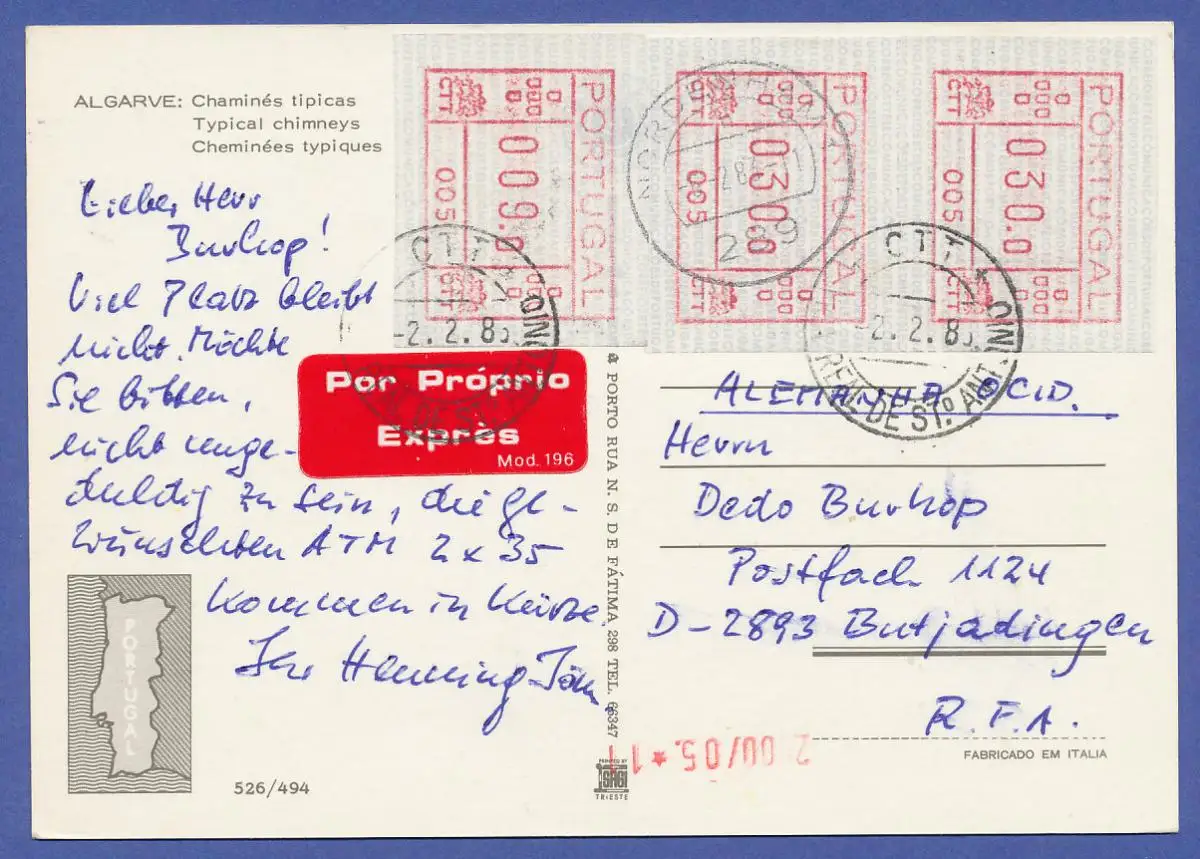 ALGARVE: Chaminés tipicas
Typical chimneys
Cheminées typiques
Lieber Herr
Burhop!
Viel Platz bleibt
nicht. Möchte
Sie bitten,
nicht unge-
duldig zu sein, die ge-
wünschten ATM 2 x 35
kommen in Kürze.
Ihr Henning
PORTUGAL
526/494
CTT 005 009.0 CTT PORTUGAL
CTT 005 030.0 CTT PORTUGAL
CTT 005 030.0 CTT PORTUGAL
NORDENHAM 1
289
CTT
-2.2.8
CTT *
-2.2.8
REAL DE STº ANTÓNIO
Por Próprio
Exprès
Mod. 196
PORTO RUA N. S. DE FÁTIMA 298 TEL. 66347
ALEMANHA OCID.
Herrn
Dedo Burhop
Postfach 1124
D-2893 Butjadingen
R.F.A.
FABRICADO EM ITALIA
2 00/05.*11
PRINTED BY
SAGI
TRIESTE